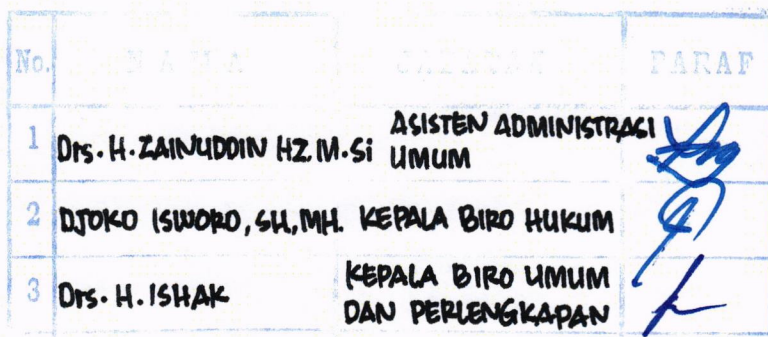 No. NAMA JABATAN PARAF
1 Drs. H. ZAINUDDIN HZ. M.Si ASISTEN ADMINISTRASI
UMUM
2 DJOKO ISWORO, SH, MH. KEPALA BIRO HUKUM
3 Drs. H. ISHAK KEPALA BIRO UMUM
DAN PERLENGKAPAN